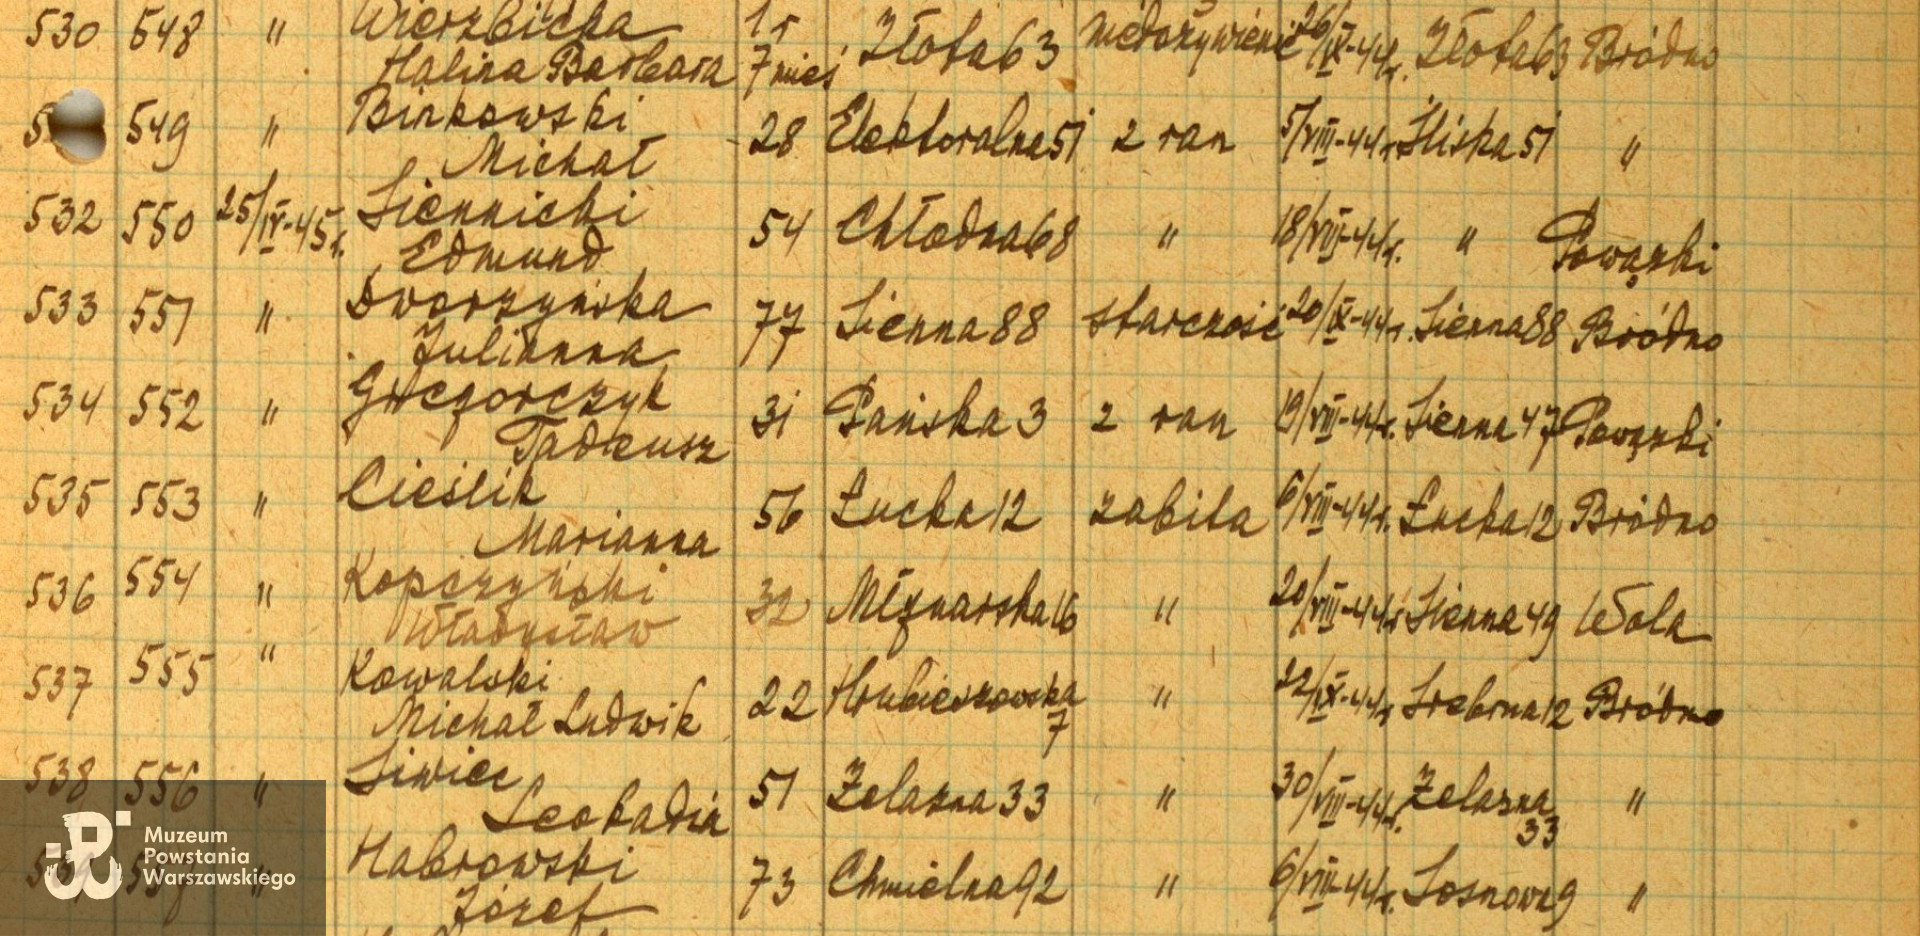 530 548 " Wierzbicka 1 r Złota 63 niedożywienie 26/IX-44r. Złota 63 Bródno
Halina Barbara 7 mies
549 " Binkowski 28 Elektoralna 51 z ran 5/VIII-44r. Śliska 51 "
Michał
532 550 25/IV-45r. Siennicki 54 Chłodna 68 " 18/VIII-44r. " Powązki
Edmund
533 551 " Dworzyńska 77 Sienna 88 starczość 20/IX-44r. Sienna 88 Bródno
Julianna
534 552 " Gregorczyk 31 Pańska 3 z ran 19/VIII-44r. Sienna 47 Powązki
Tadeusz
535 553 " Cieślik 56 Łucka 12 zabita 6/VIII-44r. Łucka 12 Bródno
Marianna
536 554 " Kopczyński 32 Młynarska 16 " 20/VIII-44r. Sienna 49 Wola
Władysław
537 555 " Kowalski 22 Hrubieszowska " 22/IX-44r. Srebrna 12 Bródno
Michał Ludwik 7
538 556 " Siwiec 51 Żelazna 33 " 30/VIII-44r. Żelazna "
Leokadia 33
" Habrowski 73 Chmielna 92 " 6/VIII-44r. Sosnowa 9 "
Józef
Muzeum
Powstania
Warszawskiego